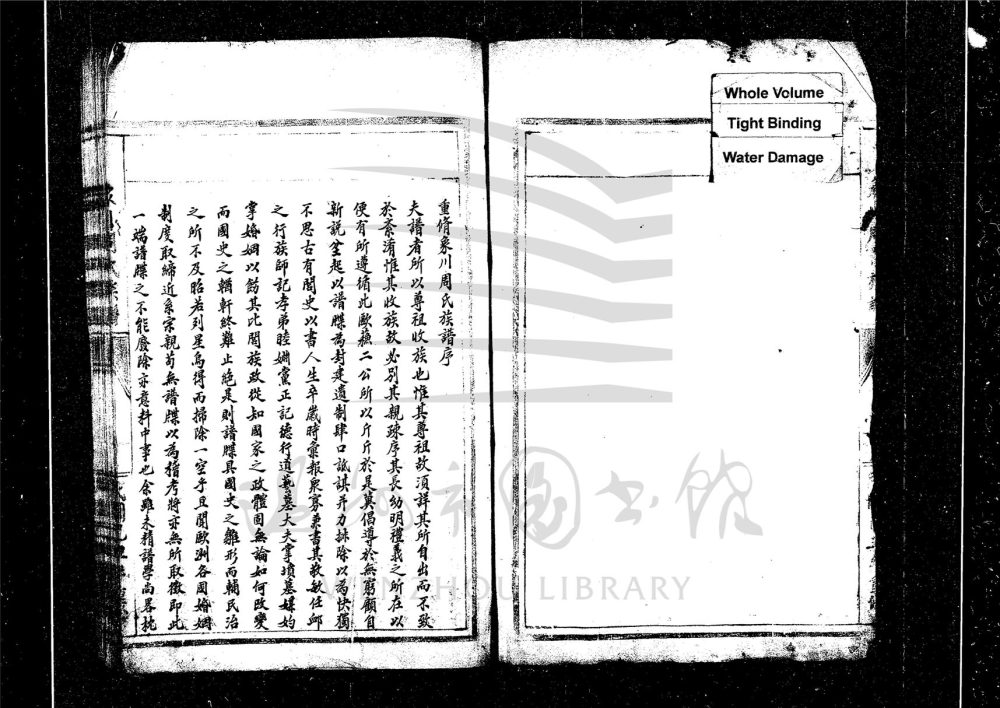 Whole Volume
Tight Binding
Water Damage
重脩象川周氏族譜序
夫譜者所以尊祖收族也惟其尊祖故須詳其所自出而不致
於紊淆惟其收族故必別其親疎序其長幼明禮義之所在以
便有所遵循此歐蘇二公所以斤斤於是莫倡導於無窮顧自
新說坌起以譜牒為封建遺制肆口詆諆并力抹除以為快獨
不思古有閭史以書人生卒歲時彙報衆寡黨書其敬敏任卹
之行族師記孝弟睦婣黨正記德行道藝墓大夫掌墳墓媒妁
掌婚姻以飭其比閭族政從知國家之政體固無論如何改變
而國史之輶軒終難止絕是則譜牒具國史之雛形而輔民治
之所不及昭若列星烏得而掃除一空乎且聞歐洲各國婚姻
制度取締近系宗親苟無譜牒以為稽考將亦無所取徵即此
一端譜牒之不能廢除亦意料中事也余雖未精譜學尚畧枕
温州市图书馆
WENZHOU LIBRARY